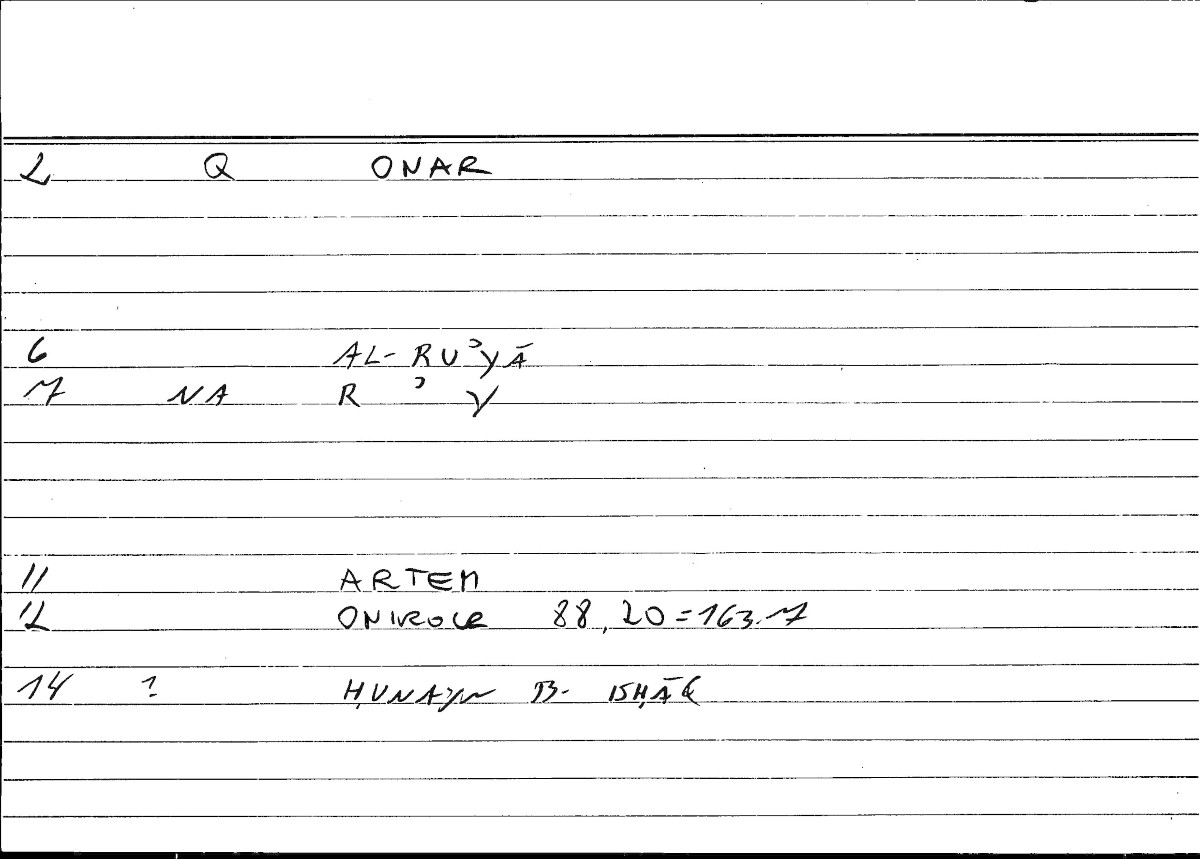 2 Q ONAR
6 AL-RUʾYĀ
7 NA R ʾ Y
11 ARTEM
12 ONIROCR 88,20=163.7
14 ? ḤUNAYN B- ISḤĀQ